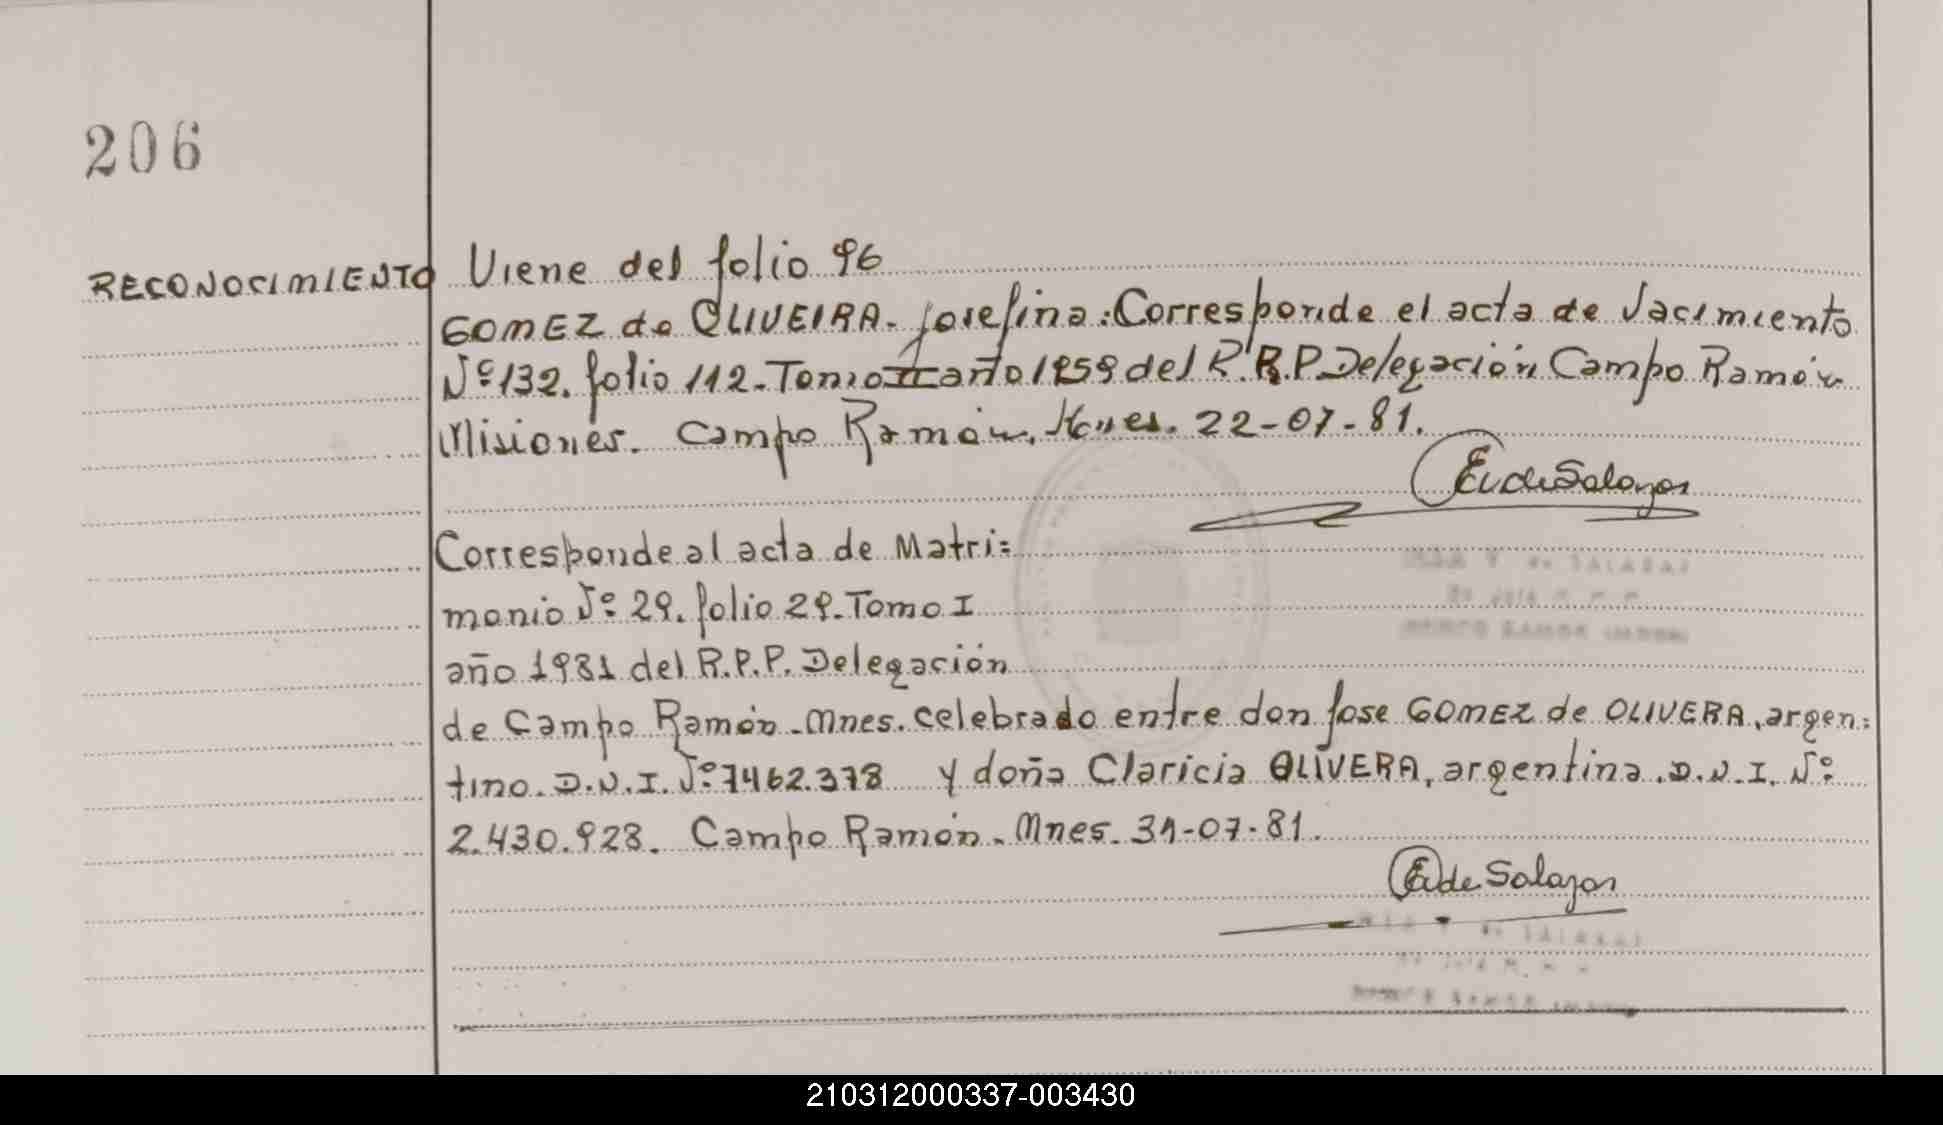 206
RECONOCIMIENTO
Viene del folio 96
GOMEZ de OLIVEIRA. Josefina: Corresponde el acta de Nacimiento
Nº 132. folio 112. Tomo II año 1959 del R.R.P. Delegación Campo Ramón
Misiones. Campo Ramón. 22-07-81.
E.V. de Salazar
Corresponde al acta de Matri=
monio Nº 29. folio 29. Tomo I
año 1981 del R.P.P. Delegación
de Campo Ramón. Mnes. celebrado entre don Jose GOMEZ de OLIVERA, argen=
tino. D.N.I. Nº 7462.378 y doña Claricia OLIVERA, argentina. D.N.I. Nº
2.430.928. Campo Ramón. Mnes. 31-07-81.
E.V. de Salazar
210312000337-003430